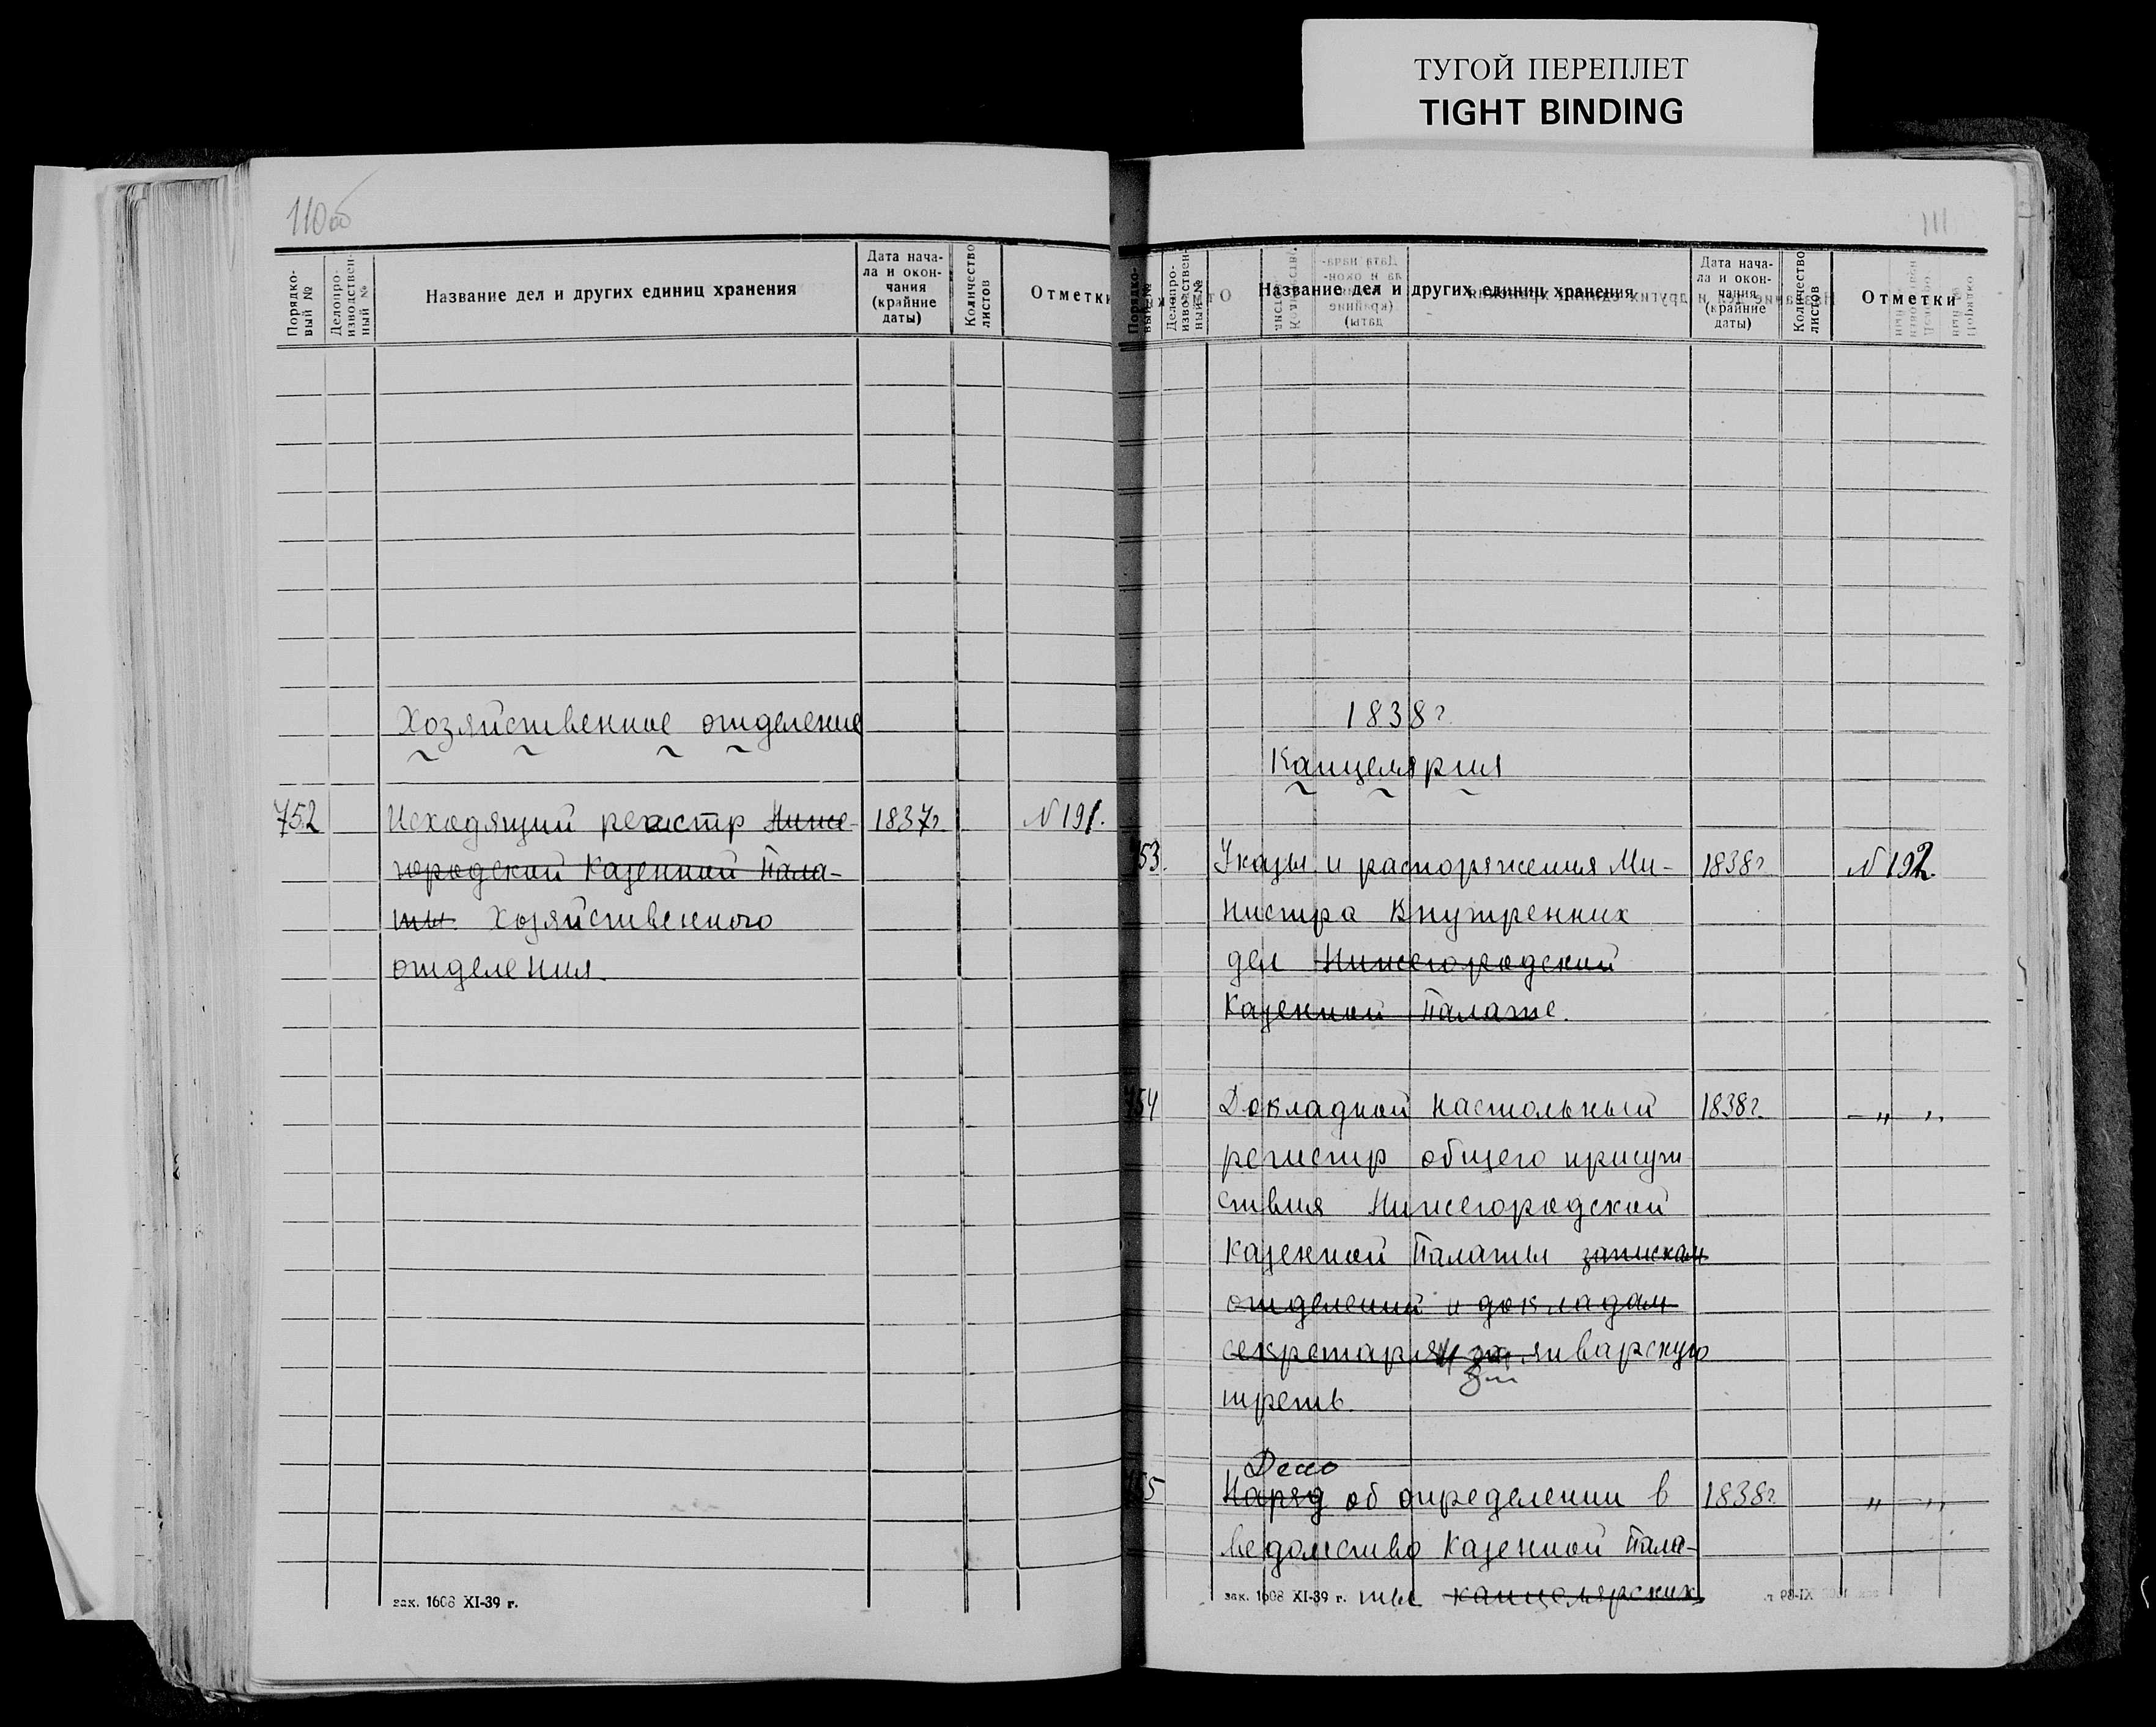 ТУГОЙ ПЕРЕПЛЕТ
TIGHT BINDING
110об
Порядко-
вый №
Делопро-
изводствен-
ный №
Название дел и других единиц хранения
Дата нача-
ла и окон-
чания
(крайние
даты)
Количество
листов
Отметки
Хозяйственное отделение
752 Исходящий регистр Ниже- 1837г. № 191.
городской Казенной Пала-
ты. Хозяйственного
отделения
зак. 1608 XI-39 г.
111
Порядко-
вый №
Делопро-
изводствен-
ный №
Название дел и других единиц хранения
Дата нача-
ла и окон-
чания
(крайние
даты)
Количество
листов
Отметки
1838г
Канцелярия
753. Указы и распоряжения Ми- 1838г. № 192.
нистра Внутренних
дел Нижегородской
Казенной Палате.
754 Докладной настольный 1838г. — „ „
регистр общего присут
ствия Нижегородской
Казенной Палаты запискам
отделений и докладам
секретаря за январскую
треть.
Дело
755 Наряд об определении в 1838г. „ „
ведомство Казенной Пала-
зак. 1608 XI-39 г. ты канцелярских